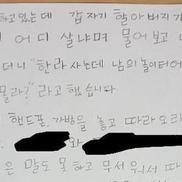 하고있는데 갑자기 할아버지가
어디 살냐며 물어보고
더니 "한라사는데 남의 놀이터에
몰라?" 라고 했습니다
핸드폰, 가방을 놓고 따라오라
와
은 말도 못하고 무서워서 따